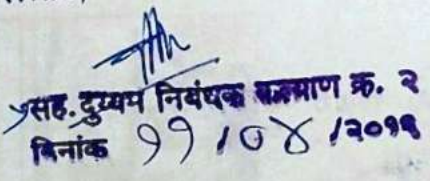 सह. दुय्यम निबंधक कल्याण क्र. २
दिनांक ११/०४/२०१९